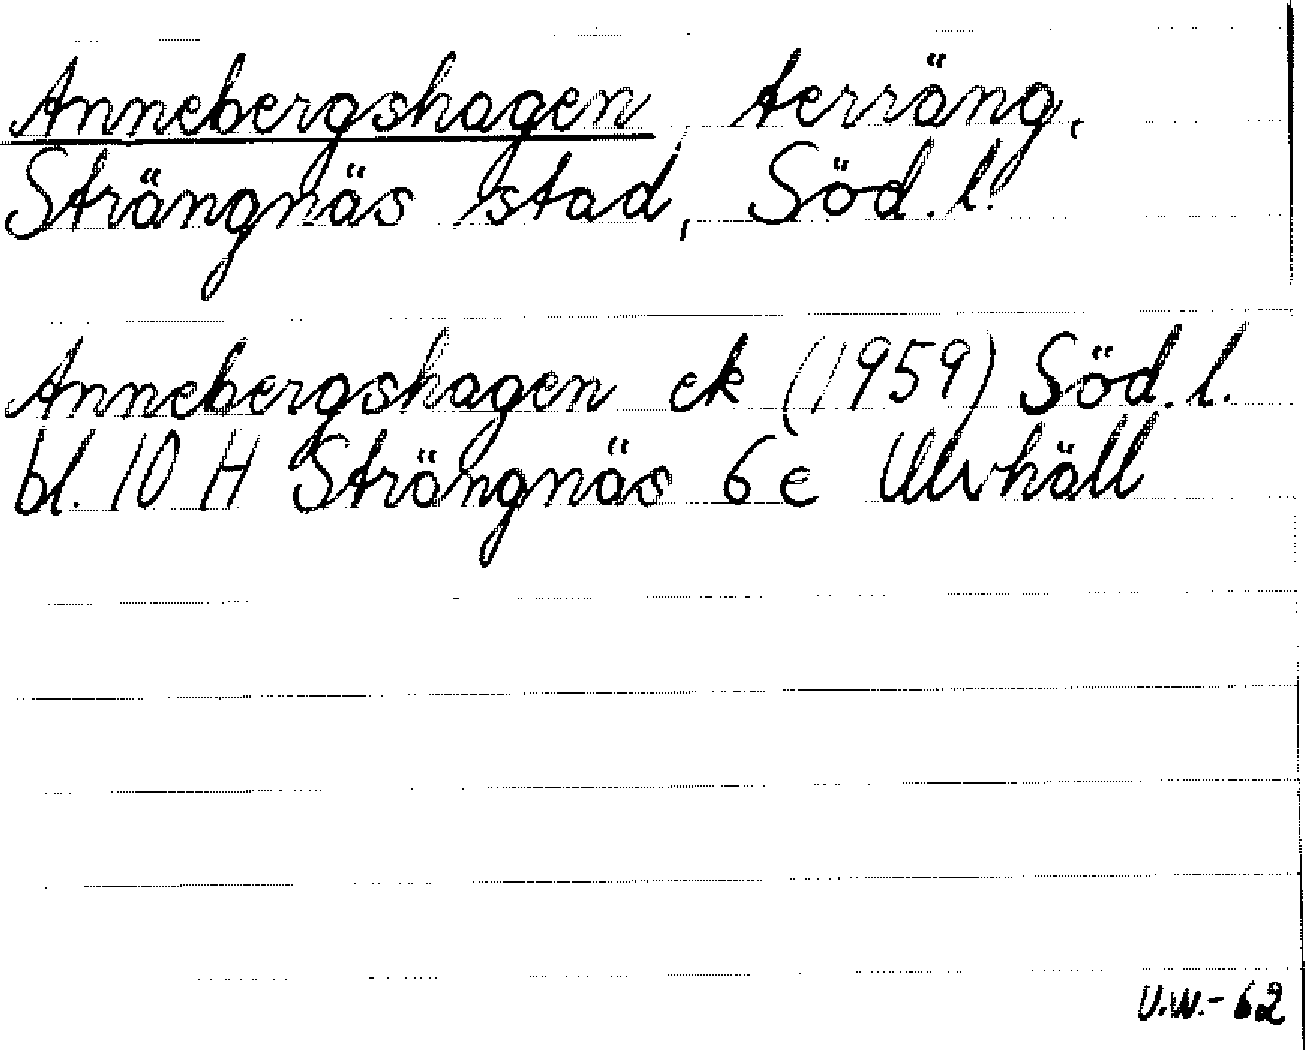 Annebergshagen, terräng.
Strängnäs stad, Söd. l.
Annebergshagen ek (1959) Söd. l.
bl. 10 H Strängnäs 6 e Ulvhäll
V.W.-62